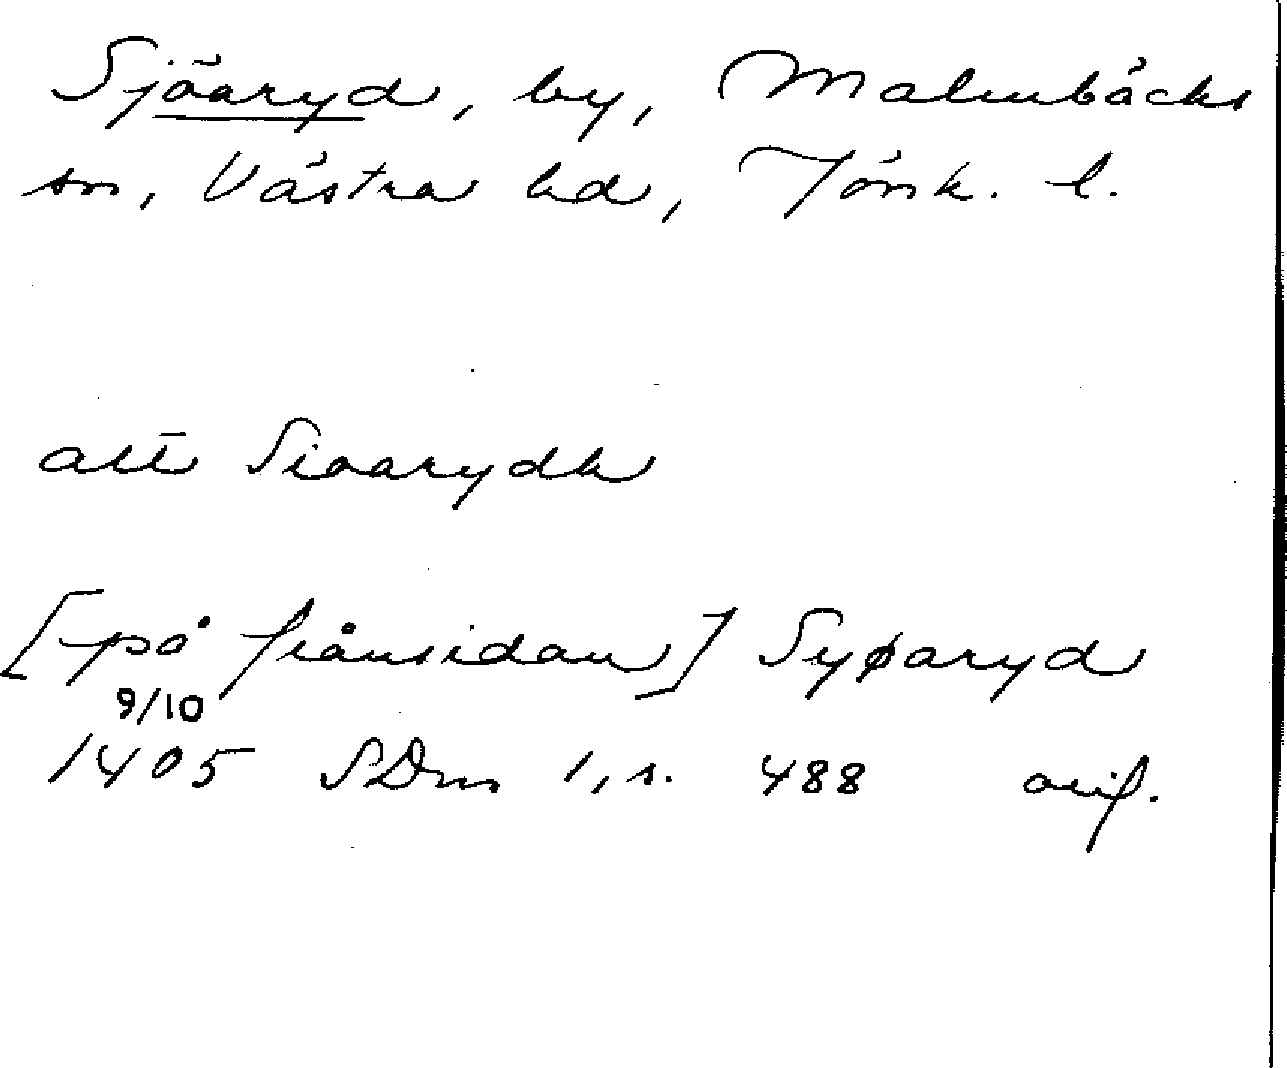 Sjöaryd, by, Malmbäcks
sn, Västra hd, Jönk. l.
att Sioarydh
[på frånsidan] Syøaryd
9/10
1405 SDns 1, s. 488 orig.